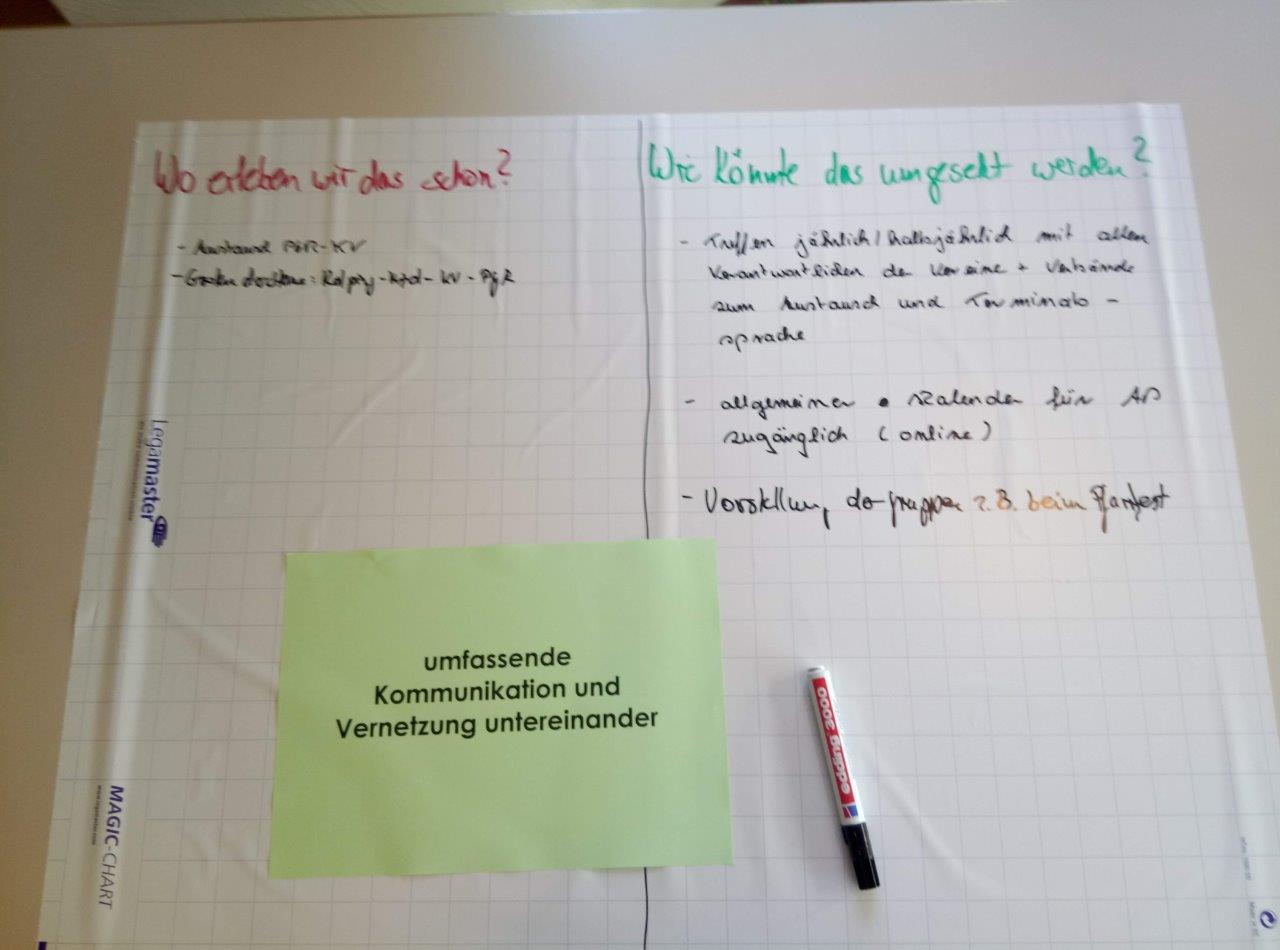 Wo erleben wir das schon?
- Austausch PGR-KV
- Kolping - kfd - KV - PGR
Wie könnte das umgesetzt werden?
- Treffen jährlich / halbjährlich mit allen
Verantwortlichen der Vereine + Verbände
zum Austausch und Terminab-
sprache
- allgemeiner Kalender für
zugänglich (online)
- Vorstellung der Gruppen z.B. beim Pfarrfest
umfassende
Kommunikation und
Vernetzung untereinander
edding 2000
Legamaster
MAGIC-CHART
www.legamaster.com